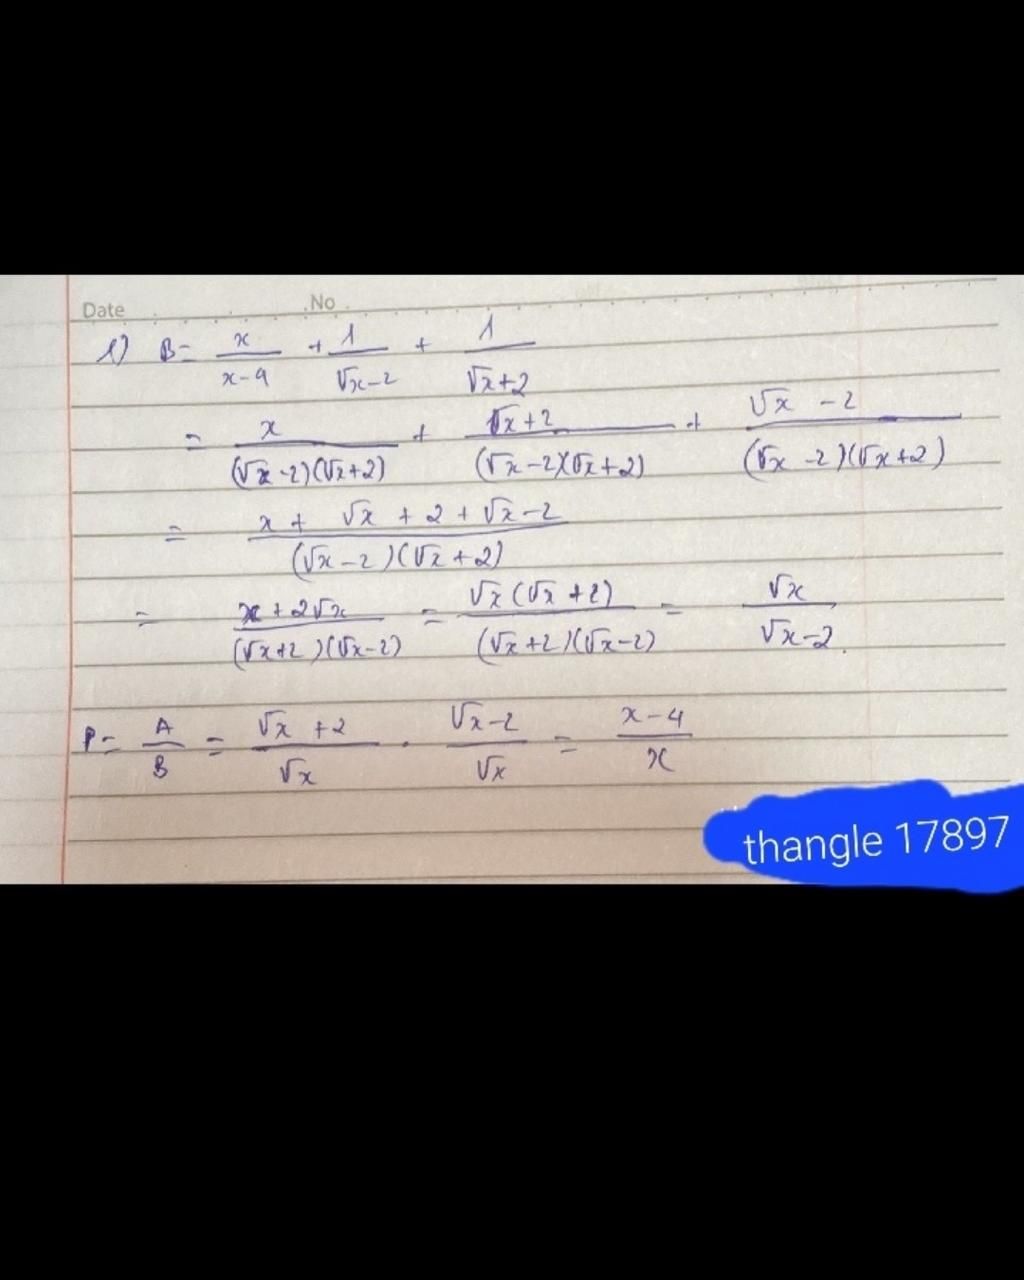 Date No
1) B = x/(x-4) + 1/(√x-2) + 1/(√x+2)
= x/((√x-2)(√x+2)) + (√x+2)/((√x-2)(√x+2)) + (√x-2)/((√x-2)(√x+2))
= (x + √x + 2 + √x-2)/((√x-2)(√x+2))
= (x+2√x)/((√x+2)(√x-2)) = (√x(√x+2))/((√x+2)(√x-2)) = √x/(√x-2).
P = A/B = (√x+2)/√x . (√x-2)/√x = (x-4)/x
thangle 17897